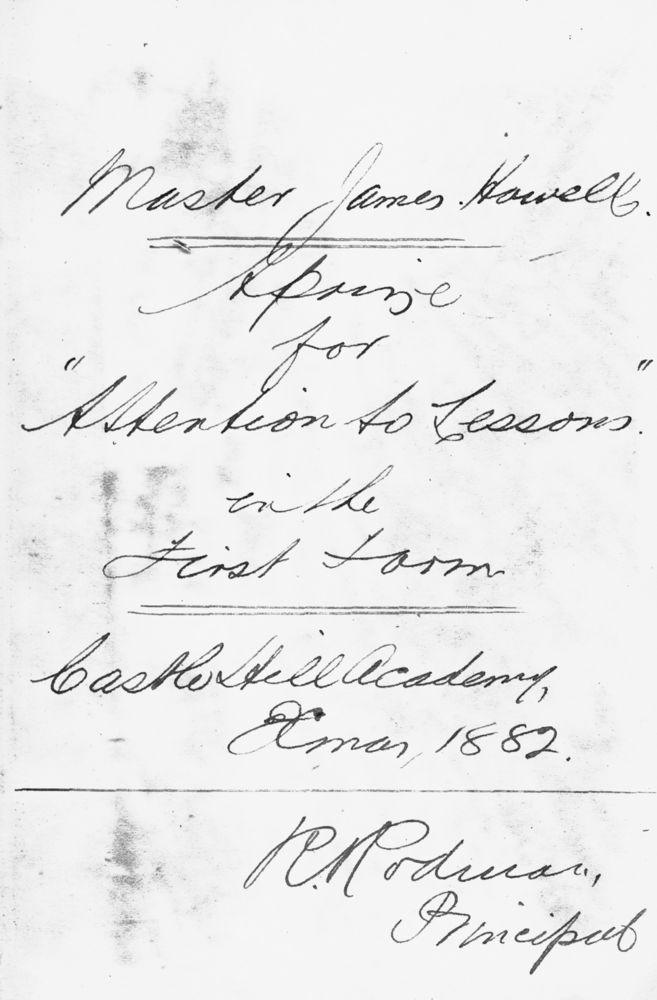 Master James Howell.
A prize
for
"Attention to Lessons."
in the
First Form
Castle Hill Academy,
Xmas, 1882.
R. Rodman,
Principal